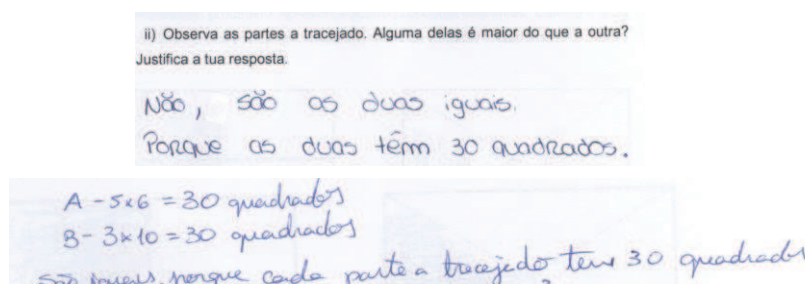 ii) Observa as partes a tracejado. Alguma delas é maior do que a outra?
Justifica a tua resposta.
Não, são as duas iguais.
Porque as duas têm 30 quadrados.
A - 5x6 = 30 quadrados
B - 3x10 = 30 quadrados
São iguais, porque cada parte a tracejado tem 30 quadrados